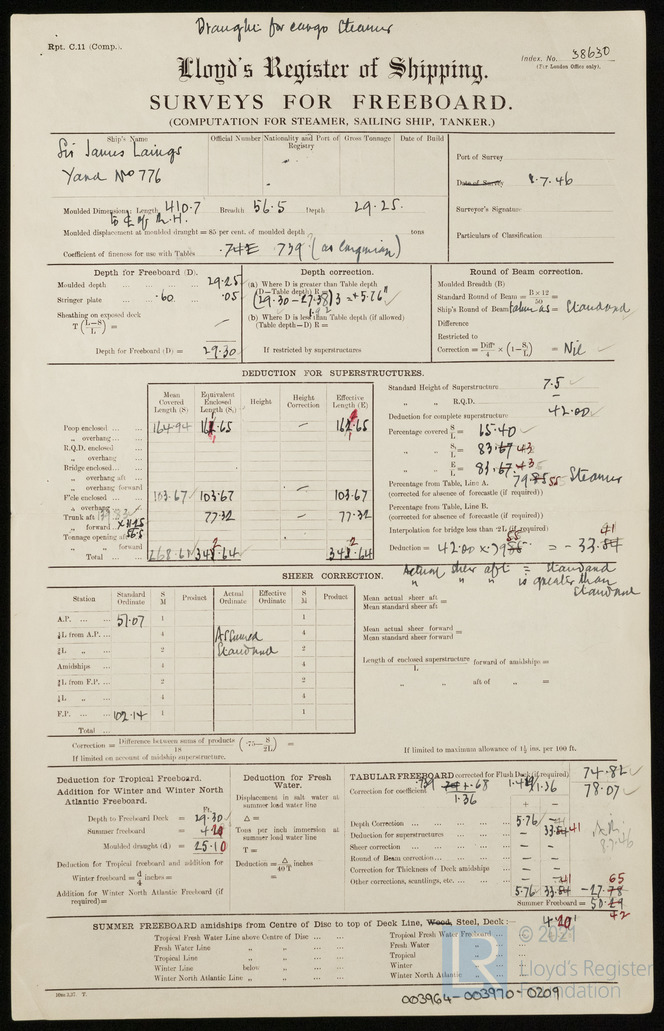 Draught for cargo Steamer
Rpt. C.11 (Comp.).
Index. No. 38630
(For London Office only).
Lloyd's Register of Shipping.
SURVEYS FOR FREEBOARD.
(COMPUTATION FOR STEAMER, SAILING SHIP, TANKER.)
Ship's Name
Official Number
Nationality and Port of Registry
Gross Tonnage
Date of Build
Sir James Laings
Yard No 776
Port of Survey
Date of Survey 8.7.46
Surveyor's Signature
Particulars of Classification
Moulded Dimensions: Length 410.7 Breadth 56.5 Depth 29.25.
to ₵ of R.H.
Moulded displacement at moulded draught = 85 per cent. of moulded depth tons
Coefficient of fineness for use with Tables .74E .739
Depth for Freeboard (D).
Moulded depth ... 29.25
Stringer plate ... .60 .05
Sheathing on exposed deck
T (L−S/L) =
Depth for Freeboard (D) = 29.30
Depth correction.
(a) Where D is greater than Table depth
(D—Table depth) R =
(29.30 - 27.38) 3 = +5.76"
1.92
(b) Where D is less than Table depth (if allowed)
(Table depth—D) R =
If restricted by superstructures
Round of Beam correction.
Moulded Breadth (B)
Standard Round of Beam = B×12/50 =
Ship's Round of Beam taken as = Standard
Difference
Restricted to
Correction = Diff*/4 × (1−S₁/L) = Nil
DEDUCTION FOR SUPERSTRUCTURES.
Mean Covered Length (S)
Equivalent Enclosed Length (S₁)
Height
Height Correction
Effective Length (E)
Poop enclosed ... 164.94 161.65 — 161.65
„ overhang ...
R.Q.D. enclosed ...
„ overhang
Bridge enclosed ...
„ overhang aft ...
„ overhang forward
F'cle enclosed ... 103.67 103.67 — 103.67
„ overhang
Trunk aft 77.32 — 77.32
„ forward
Tonnage opening aft
„ „ forward
Total ... 268.61 342.64 342.64
Standard Height of Superstructure 7.5
„ „ R.Q.D. —
Deduction for complete superstructure 42.00
Percentage covered S/L = 65.40
„ „ S₁/L = 83.67 43
„ „ E/L = 83.67 43
Percentage from Table, Line A. 79.85 55 Steamer
(corrected for absence of forecastle (if required))
Percentage from Table, Line B.
(corrected for absence of forecastle (if required))
Interpolation for bridge less than ·2L (if required)
Deduction = 42.00 × .7955 = - 33.54 41
SHEER CORRECTION.
Actual sheer aft = standard
„ „ „ is greater than standard
Station
Standard Ordinate
S M
Product
Actual Ordinate
Effective Ordinate
S M
Product
A.P. ... 51.07 1 1
⅙L from A.P. ... 4 Assumed 4
⅓L „ 2 Standard 2
Amidships ... 4 4
⅓L from F.P. ... 2 2
⅙L „ 4 4
F.P. ... 102.14 1 1
Total ...
Mean actual sheer aft =
Mean standard sheer aft
Mean actual sheer forward =
Mean standard sheer forward
Length of enclosed superstructure forward of amidships =
L
„ „ aft of „ =
Correction = Difference between sums of products/18 (·75− S/2L) =
If limited on account of midship superstructure.
If limited to maximum allowance of 1½ ins. per 100 ft.
Deduction for Tropical Freeboard.
Addition for Winter and Winter North Atlantic Freeboard.
Ft.
Depth to Freeboard Deck = 29.30
Summer freeboard = 4.20
Moulded draught (d) = 25.10
Deduction for Tropical freeboard and addition for
Winter freeboard = d/4 inches =
Addition for Winter North Atlantic Freeboard (if required) =
Deduction for Fresh Water.
Displacement in salt water at summer load water line
Δ =
Tons per inch immersion at summer load water line
T =
Deduction = Δ/40T inches
=
TABULAR FREEBOARD corrected for Flush Deck (if required) 74.82
Correction for coefficient .739 + .68 / 1.36 1.419/1.36 78.07
+ −
Depth Correction ... 5.76 —
Deduction for superstructures ... — 33.54 41
Sheer correction ... — —
Round of Beam correction ... — —
Correction for Thickness of Deck amidships ... — —
Other corrections, scantlings, etc. ... — —
5.76 33.54 41 -27.78 65
Summer Freeboard = 50.29 42
8.7.46
SUMMER FREEBOARD amidships from Centre of Disc to top of Deck Line, Wood, Steel, Deck:— 4.20'
Tropical Fresh Water Line above Centre of Disc ...
Fresh Water Line „ „ ...
Tropical Line „ „ ...
Winter Line below „ ...
Winter North Atlantic Line „ „ ...
Tropical Fresh Water Freeboard ...
Fresh Water „
Tropical „
Winter „
Winter North Atlantic „
© 2021
LR
Lloyd's Register
Foundation
003964-003970-0209